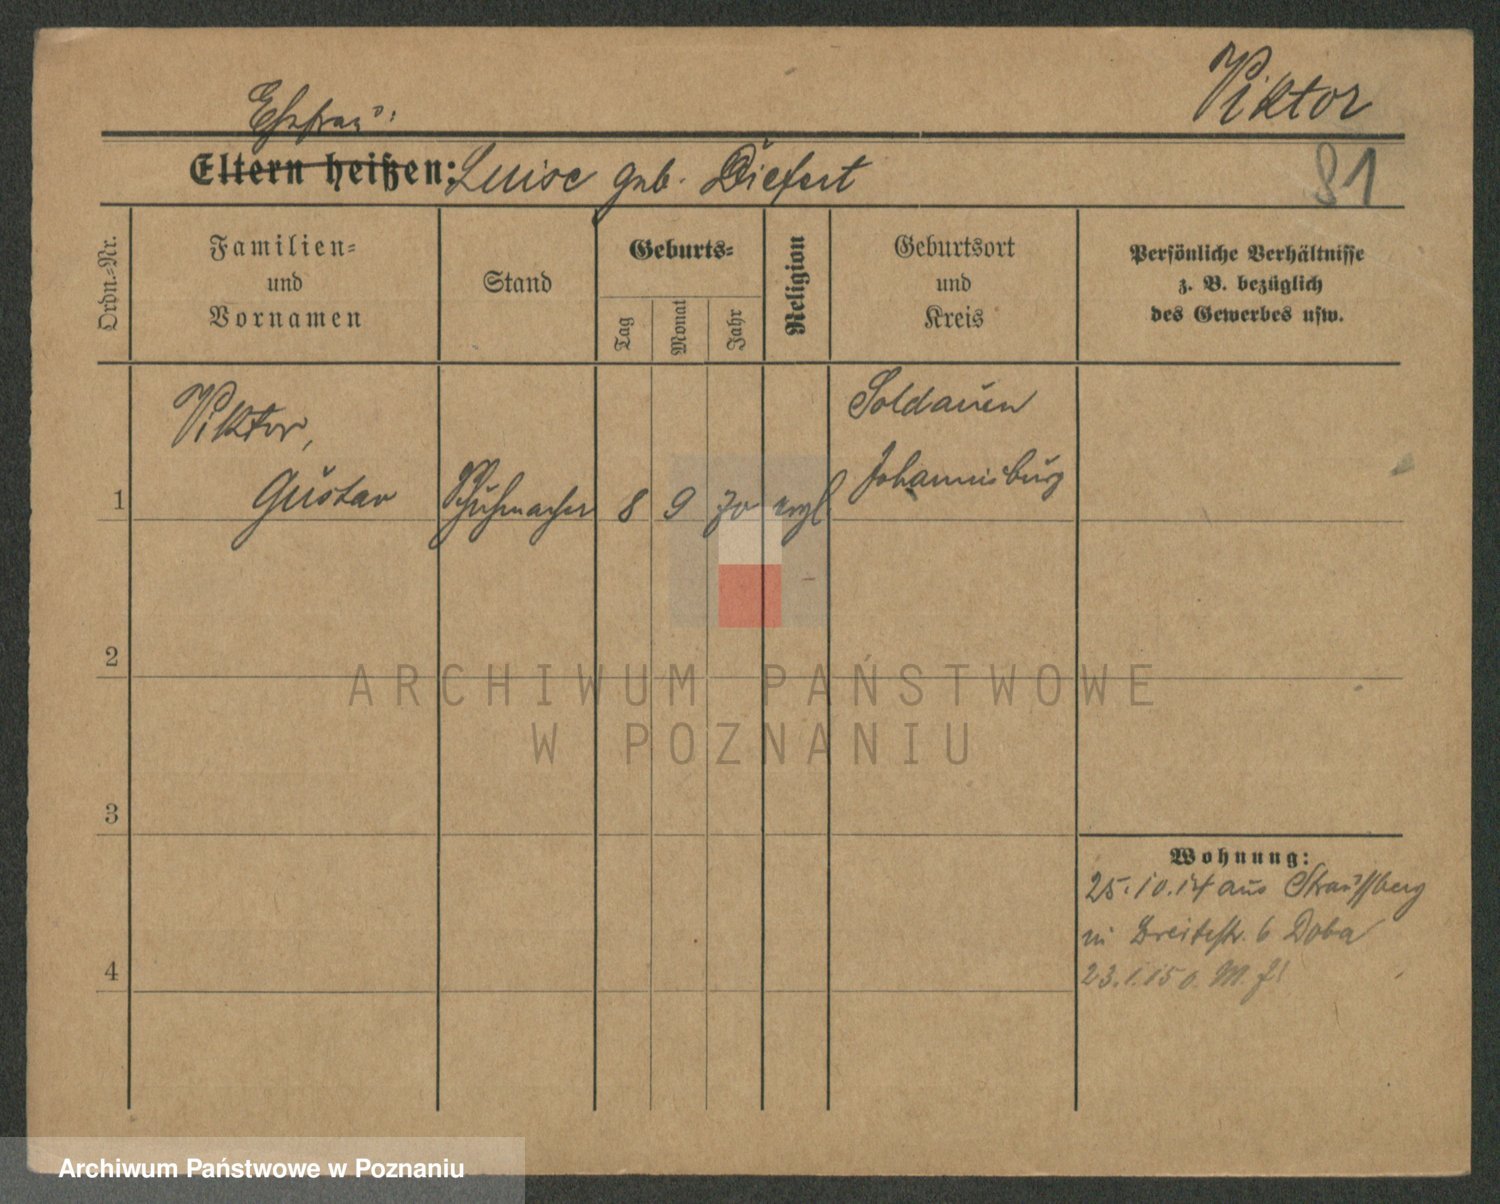 Viktor
Ehefrau:
Eltern heißen: Luise geb. Diefert
81
Ordn.-Nr.
Familien-
und
Vornamen
Stand
Geburts-
Tag
Monat
Jahr
Religion
Geburtsort
und
Kreis
Persönliche Verhältnisse
z. B. bezüglich
des Gewerbes usw.
Viktor,
Soldauen
1 Gustav Schuhmacher 8 9 70 evgl Johannisburg
2
ARCHIWUM PAŃSTWOWE
W POZNANIU
3
Wohnung:
25.10.14 aus Straußberg
in Breitestr. 6 Doba
4
23.1.15 o. M. f!
Archiwum Państwowe w Poznaniu